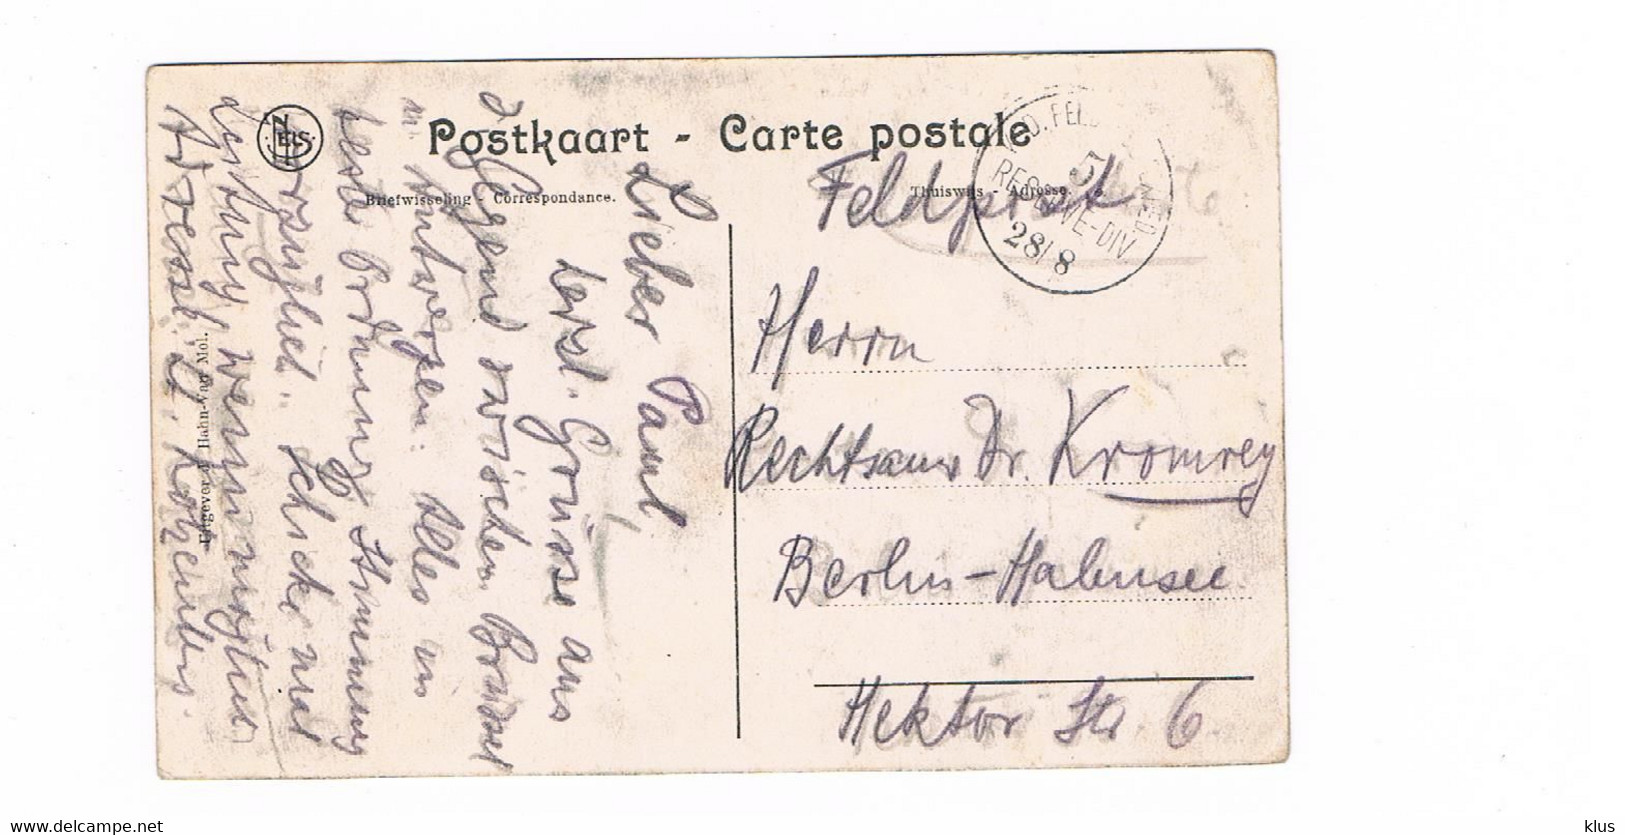 Postkaart - Carte postale
Briefwisseling - Correspondance.
Thuiswijs - Adresse.
NELS
Uitgever Hahn-Van Mol.
D. FELD
5
RESERVE-DIV
28/8
Feldpost
Herrn
Rechtsanw Dr. Kromrey
Berlin-Halensee
Hektor Str 6
Lieber Paul,
herzl. Grüsse aus
d Gegend zwischen Brüssel
u. Antwerpen. Alles in
bester Ordnung, Stimmung
vorzüglich. Schicke mal
Zeitung wenn möglich
Adresse:
www.delcampe.net
klus